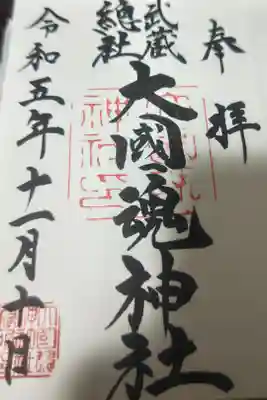 奉拝
武蔵
總社
大國魂神社
令和五年十一月十日